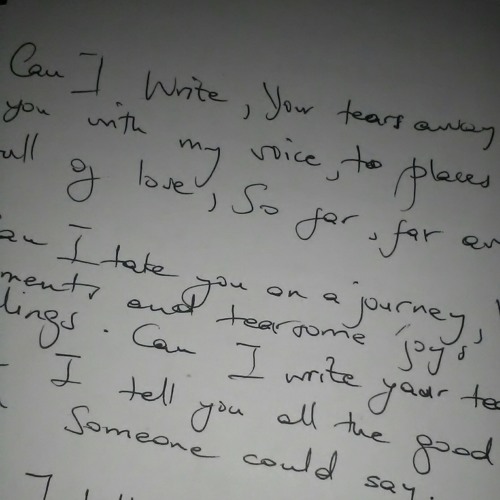 Can I Write, Your tears away
you with my voice, to places
of love, So far, far
I take you on a journey,
and tearsome joys
Can I write your
I tell you all the good
Someone could say
I